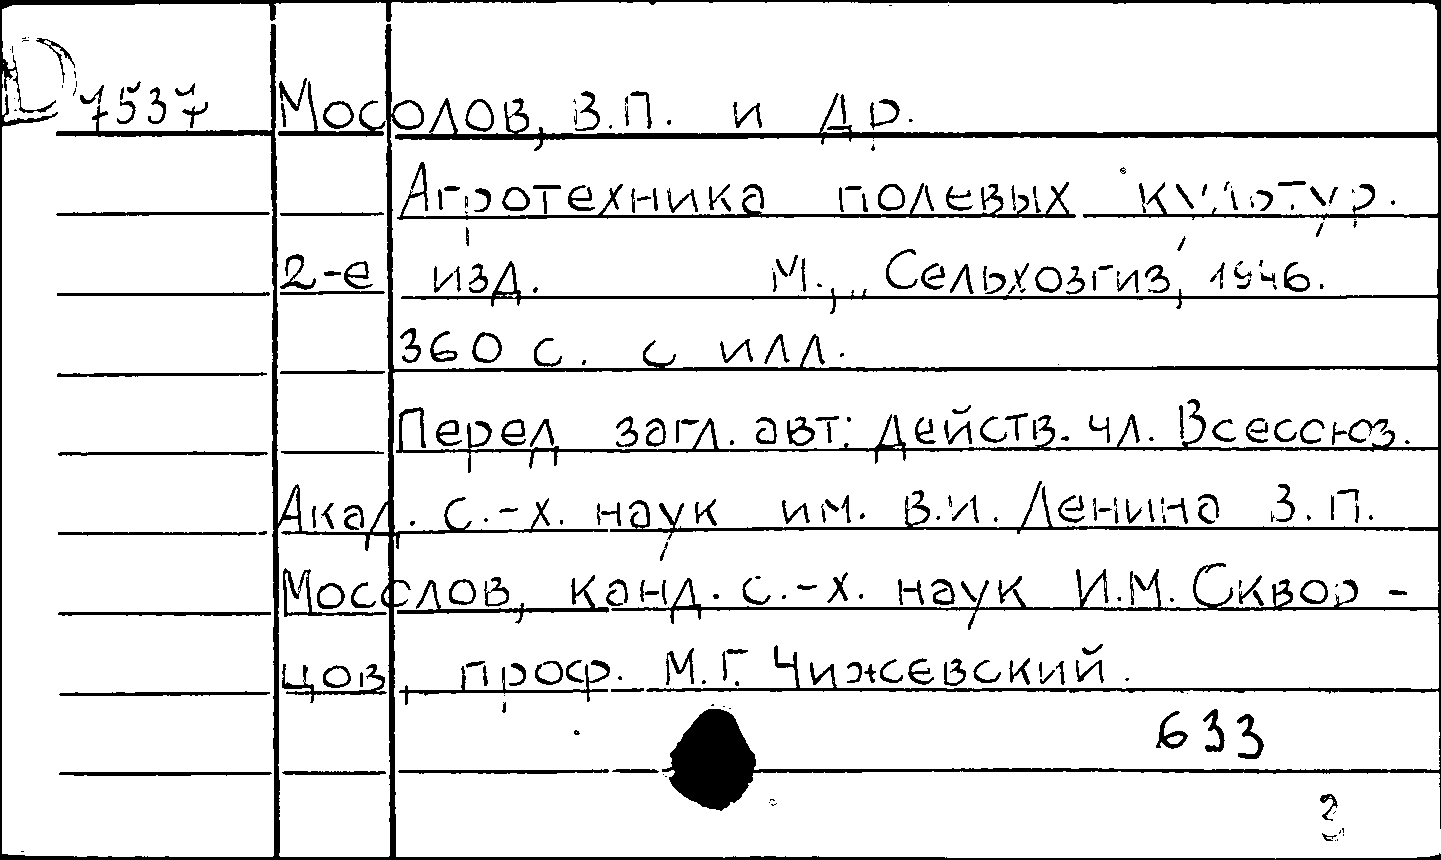 D 7537 Мосолов, В.П. и др.
Агротехника полевых культур.
2-е изд. М., „Сельхозгиз", 1946.
360 с. с илл.
Перед загл. авт: действ. чл. Всесоюз.
Акад. с.-х. наук им. В.И. Ленина В.П.
Мосолов, канд. с.-х. наук И.М. Сквор-
цов, проф. М.Г. Чижевский.
633